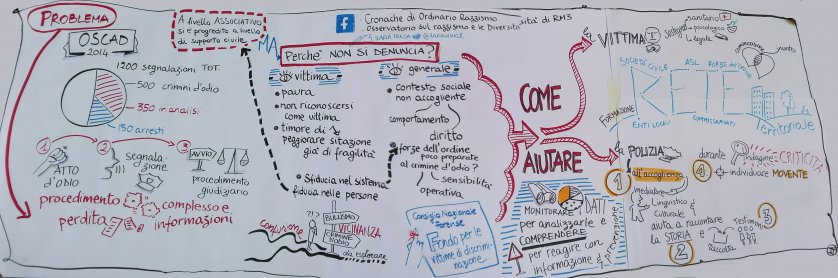 PROBLEMA
OSCAD
2014
1200 segnalazioni TOT.
500 crimini d'odio
350 in analisi
150 arresti
1
2
3
ATTO
D'ODIO
segnala-
zione
AVVIO
procedimento
giudiziario
procedimento
perdita
complesso e
informazioni
A livello ASSOCIATIVO
si è progredito a livello
di supporto civile.
MA
f
- Cronache di Ordinario Razzismo
- Osservatorio sul razzismo e le Diversità
di RM3
Perché NON SI DENUNCIA?
vittima
• paura
• non riconoscersi
come vittima
• timore di
peggiorare situazione
già di fragilità
• Sfiducia nel sistema
fiducia nelle persone
generale
• contesto sociale
non accogliente
comportamento
diritto
• forze dell'ordine
poco preparate
al crimine d'odio?
Sensibilità
operativa
confusione
?!
BULLISMO
VICINANZA
CRIMINE
D'ODIO
da esplorare
Consiglio Nazionale
Forense
Fondo per le
vittime di discrimi-
nazione
COME
AIUTARE
MONITORARE
DATI
per analizzarli e
COMPRENDERE
per reagire con
informazione &
prevenzione
la VITTIMA
sostegno
sanitario
psicologico
legale
comunicazione
SOCIETÀ CIVILE
ASL
FORZE dell'Ordine
RETE
Formazione
ENTI LOCALI
COMMISSARIATI
Territoriale
la POLIZIA
1
all'accoglienza
mediatore
Linguistico
e
Culturale
aiuta a raccontare
la STORIA e
2
raccolta
Testimoni
3
4
durante
indagine
CRITICITÀ
individuare MOVENTE